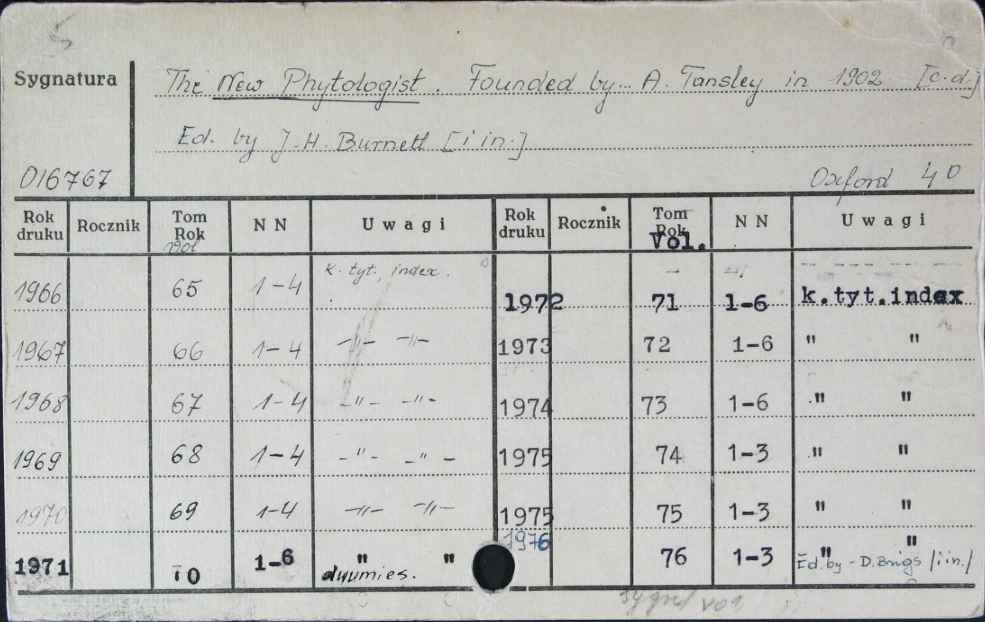 Sygnatura
The New Phytologist. Founded by A. Tansley in 1902 [c.d.]
Ed. by J.H. Burnett [i in.]
016767
Oxford 4°
Rok druku Rocznik Tom Rok NN Uwagi Rok druku Rocznik Tom Rok Vol. NN Uwagi
1966 65 1-4 k. tyt, index. 1972 71 1-6 k.tyt.index
1967 66 1-4 -"- -"- 1973 72 1-6 " "
1968 67 1-4 -"- -"- 1974 73 1-6 " "
1969 68 1-4 -"- -"- 1975 74 1-3 " "
1970 69 1-4 -"- -"- 1975 75 1-3 " "
1971 70 1-6 " " 1976 76 1-3 " "
dwumies. Ed. by - D. Brigs /i in./